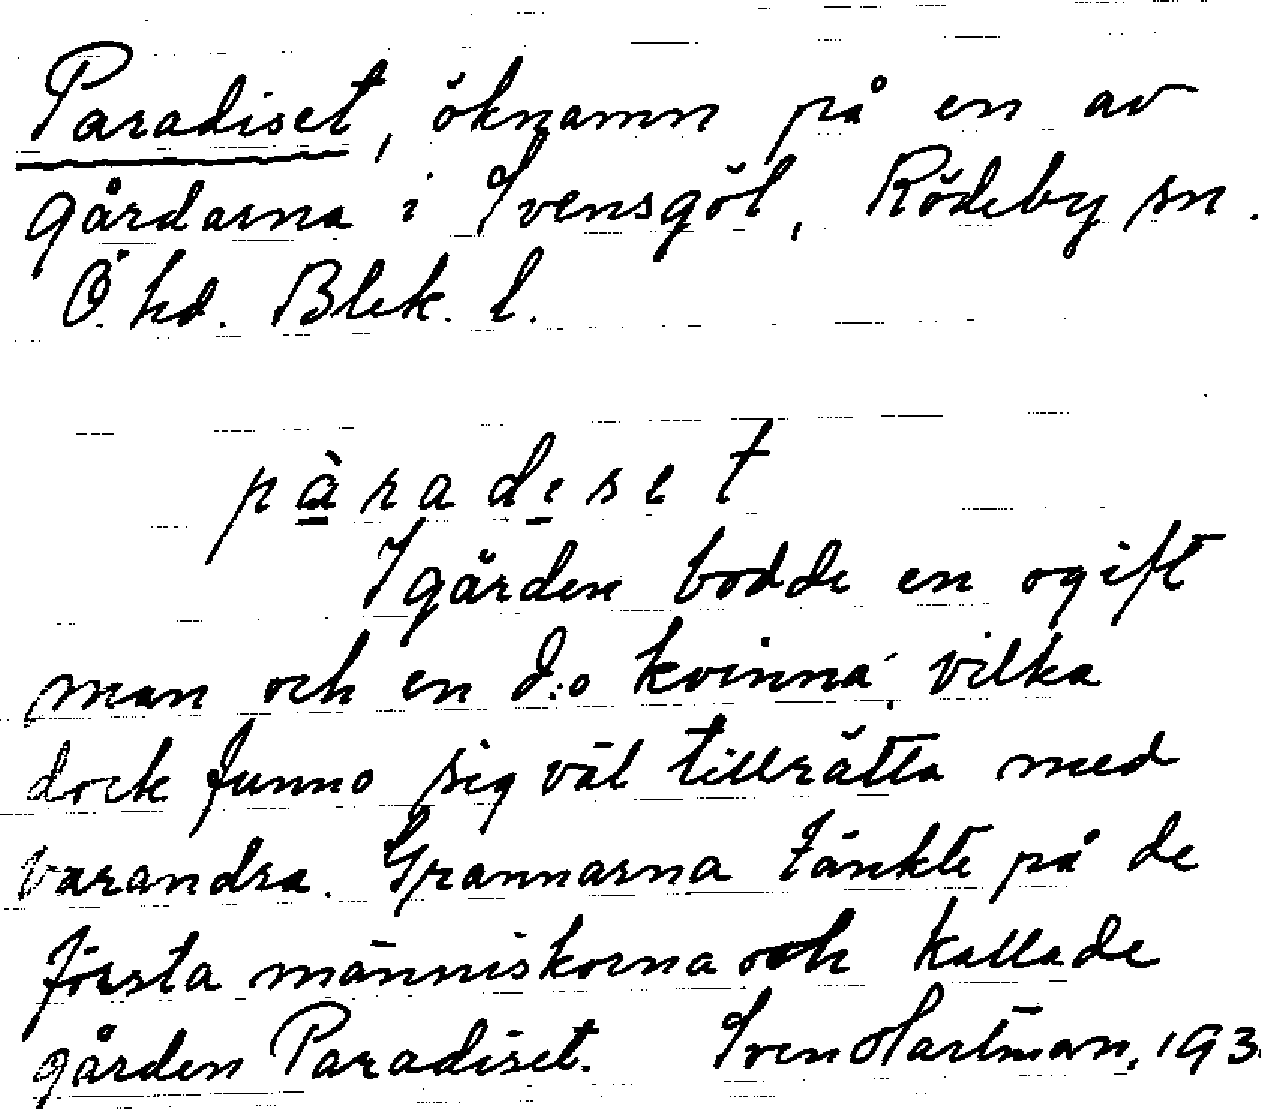 Paradiset, öknamn på en av
gårdarna i Svensgöl, Rödeby sn.
Ö. hd. Blek. l.
pàradiset
I gården bodde en ogift
man och en d:o kvinna, vilka
dock funno sig väl tillrätta med
varandra. Grannarna tänkte på de
första människorna och kallade
gården Paradiset. Sven Hartman, 193